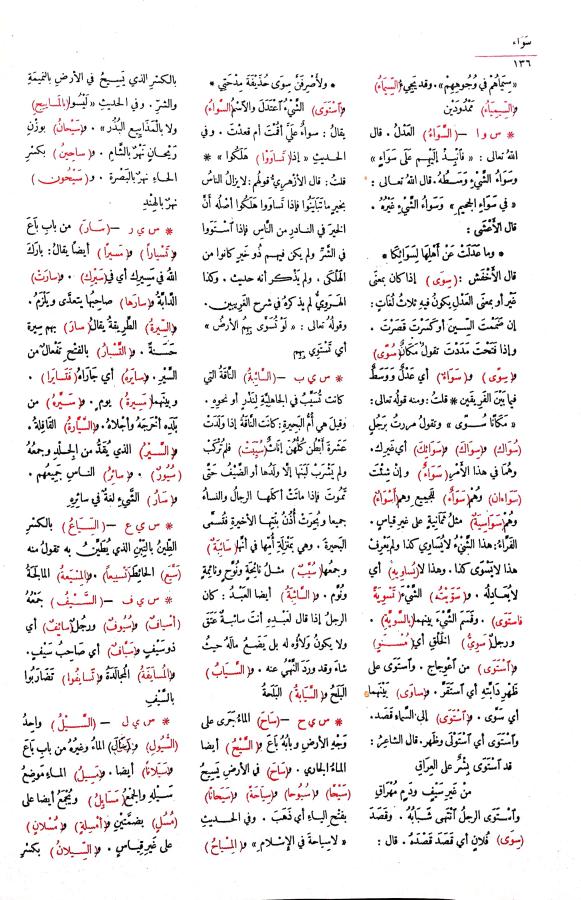 سَوَاء
١٣٦
«سِيمَاهُمْ فِي وُجُوهِهِمْ». وقد يجيءُ (السِّيمَاءُ)
و(السِّيمِيَاءُ) مَمْدُودَيْن
* س و ا – (السَّوَاءُ) العَدْلُ. قال
اللهُ تعالى: «فَانْبِذْ إِلَيْهِمْ عَلَى سَوَاءٍ»
وسَوَاءُ الشَّيْءِ وَسَطُهُ. قال اللهُ تعالى:
«فِي سَوَاءِ الجحِيمِ» وسَوَاءُ الشَّيْءِ غَيْرُهُ.
قال الأَعْشَى:
* وما عَدَلَتْ عَنْ أَهْلِهَا لِسَوَائِكَا *
قال الأَخْفَشُ: (سِوًى) إذا كان بمعنى
غَيْرٍ أو بمعنى العَدْلِ يكونُ فيه ثلاثُ لُغَاتٍ:
إن ضَمَمْتَ السِّينَ أو كَسَرْتَ قَصَرْتَ.
وإذا فَتَحْتَ مَدَدْتَ تقولُ مكانٌ (سُوًى)
و(سِوًى) و(سَوَاءٌ) أي عَدْلٌ ووَسَطٌ
فيما بَيْنَ الفَرِيقَيْنِ * قلتُ: ومنه قولُه تعالى:
«مَكَانًا سُوًى» وتقولُ مررتُ برَجُلٍ
(سُوَاكَ) و(سِوَاكَ) و(سَوَائِكَ) أي غيرِك.
وهُمَا في هذا الأَمْرِ (سَوَاءٌ) وإن شِئْتَ
(سَوَاءانِ) وهُمْ (سَوَاءٌ) للجميع وهم (أَسْوَاءٌ)
وهُمْ (سَوَاسِيَةٌ) مثلُ ثمانِيَةٍ على غيرِ قياسٍ.
الفَرَّاءُ: هذا الشَّيْءُ لا يُسَاوِي كذا ولم يَعْرِفْ
هذا لا يَسْوَى كذا. وهذا لا (يُسَاوِيهِ) أي
لا يُعَادِلُه. و(سَوَّيْتُ) الشَّيْءَ (تَسْوِيَةً)
(فاستَوَى). وقَسَمَ الشَّيْءَ بينهما (بالسَّوِيَّةِ).
ورجلٌ (سَوِيُّ) الخَلْقِ أي (مُسْتَوٍ)
و(اسْتَوَى) من اعْوِجاجٍ. واسْتَوَى على
ظَهْرِ دابَّتِهِ أي اسْتَقَرَّ. و(ساوَى) بَيْنَهُما
أي سَوَّى. و(اسْتَوَى) إلى السَّماءِ قَصَدَ.
واسْتَوَى أي استَوْلَى وظَهَرَ. قال الشاعرُ:
قد اسْتَوَى بِشْرٌ على العِرَاقِ
مِنْ غَيرِ سَيْفٍ ودَمٍ مُهْرَاقِ
واسْتَوَى الرجلُ انْتَهَى شَبَابُهُ. وقَصَدَ
(سِوَى) فُلانٍ أي قَصَدَ قَصْدَهُ. قال:
* ولأَصْرِفَنَّ سِوَى حُذَيْفَةَ مِدْحَتِي *
و(اسْتَوَى) الشَّيْءُ اعْتَدَلَ والاسْمُ (السَّوَاءُ)
يقالُ: سواءٌ عليَّ أَقُمْتَ أم قَعَدْتَ. وفي
الحديثِ «إذا (تَسَاوَوْا) هَلَكُوا» *
قلتُ: قال الأزْهَرِيُّ قولُهم: لا يزالُ الناسُ
بخيرٍ ما تَبَايَنُوا فإذا تَساوَوْا هَلَكُوا أصلُه أنَّ
الخيرَ في النادرِ من الناسِ فإذا اسْتَوَوْا
في الشَّرِّ ولم يكن فيهم ذُو خيرٍ كانوا من
الهَلْكَى. ولم يذكُر أنه حديث. وكذا
الهَرَوِيُّ لم يذكره في شرحِ الغَرِيبينِ.
وقولُه تعالى: «لَوْ تُسَوَّى بِهِمُ الأرضُ»
أي تَسْتَوِي بِهِم
* س ي ب – (السَّائِبَةُ) النَّاقةُ التي
كانت تُسَيَّبُ في الجاهليةِ لِنَذْرٍ أو نحوِه.
وقيلَ هي أُمُّ البَحِيرَةِ: كانت النَّاقةُ إذا وَلَدَتْ
عَشْرَةَ أَبْطُنٍ كُلُّهُنَّ إناثٌ (سُيِّبَتْ) فلم تُرْكَبْ
ولم يَشْرَبْ لَبَنَها إلَّا وَلَدُها أو الضَّيْفُ حتَّى
تَمُوتَ فإذا ماتَتْ أكلَها الرجالُ والنساءُ
جميعا وبُحِرَتْ أُذُنُ بِنْتِها الأخيرةِ فتُسمَّى
البَحِيرَةَ. وهي بمَنْزِلَةِ أُمِّها في أنَّها (سائِبَةٌ)
وجمعُها (سُيَّبٌ) مثلُ نائِحةٍ ونُوَّحٍ ونائِمةٍ
ونُوَّمٍ. و(السَّائِبَةُ) أيضا العَبْدُ: كان
الرجلُ إذا قال لعَبْدِه أنتَ سائبةٌ عَتَقَ
ولا يكونُ وَلاؤُه له بل يَضَعُ مالَهُ حيثُ
شاءَ وقد وردَ النَّهيُ عنه. و(السَّيَابُ)
البَلَحُ و(السَّيَابَةُ) البَلَحَةُ
* س ي ح – (سَاحَ) الماءُ جَرَى على
وَجْهِ الأرضِ وبابُهُ بَاعَ و(السَّيْحُ) أيضا
الماءُ الجاري. و(ساحَ) في الأرضِ يَسِيحُ
(سَيْحًا) و(سُيُوحًا) و(سِياحَةً) و(سَيَحَانًا)
بفتح الياءِ أي ذَهَبَ. وفي الحديثِ
«لا سِياحةَ في الإسْلامِ» و(المِسْياحُ)
بالكَسْرِ الذي يَسِيحُ في الأرضِ بالنَّمِيمَةِ
والشَّرِّ. وفي الحديث «لَيْسُوا (بالمَسَايِيحِ)
ولا بالمَذَايِيعِ البُذُرِ». و(سَيْحَانُ) بوَزْنِ
رَيْحَان نَهْرٌ بالشَّامِ. و(سَاحِينُ) بكَسْرِ
الحاءِ نَهْرٌ بالبَصْرَةِ. و(سَيْحُون)
نَهْرٌ بالهِنْدِ
* س ي ر – (سَارَ) من بابِ بَاعَ
و(تَسْيَارًا) و(مَسِيرًا) أيضا يقالُ: بارَكَ
اللهُ في مَسِيرِك أي في (سَيْرِكَ). و(سارَتْ)
الدَّابَّةُ و(سارَهَا) صاحِبُها يتعدَّى ويَلْزَمُ.
و(السِّيرَةُ) الطَّرِيقةُ يقالُ (سارَ) بهم سِيرةً
حَسَنةً. و(التَّسْيَارُ) بالفتح تَفْعَالٌ من
السَّيْرِ. و(سايَرَهُ) أي جَارَاهُ (فَتَسَايَرَا)
وبينَهما (مَسِيرَةُ) يومٍ. و(سَيَّرَهُ) من
بلَدِه أخْرَجَهُ وأجْلاهُ. و(السَّيَّارَةُ) القافِلَةُ.
و(السَّيْرُ) الذي يُقَدُّ من الجِلْدِ وجمعُه
(سُيُورٌ). و(سائِرُ) الناسِ جَمِيعُهم.
و(سَارُ) الشَّيْءِ لغةٌ في سائِرِهِ
* س ي ع – (السِّيَاعُ) بالكَسْرِ
الطِّينُ بالتِّبْنِ الذي يُطَيَّنُ به تقولُ منه
(سَيَّعَ) الحائطَ (تَسْيِيعًا). و(المِسْيَعَةُ) المالَجَةُ
* س ي ف – (السَّيْفُ) جَمْعُهُ
(أسْيَافٌ) و(سُيُوفٌ) ورجُلٌ (سائِفٌ) أي
ذو سَيْفٍ و(سَيَّافٌ) أي صاحبُ سَيْفٍ.
و(المُسَايَفَةُ) المُجَالَدَةُ و(تَسَايَفُوا) تَضَارَبُوا
بالسَّيْفِ
* س ي ل – (السَّيْلُ) واحِدُ
(السُّيُولِ) و(سَالَ) الماءُ وغيرُه من بابِ بَاعَ
و(سَيَلانًا) أيضا. و(مَسِيلُ) الماءِ مَوْضِعُ
سَيْلِهِ والجمعُ (مَسَايِلُ) ويُجْمَعُ أيضا على
(مُسُلٍ) بضمَّتَيْنِ و(أمْسِلَةٍ) و(مُسْلانٍ)
على غيرِ قِياسٍ. و(السِّيلانُ) بكَسْرِ